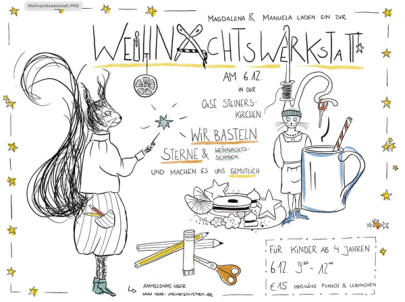 Weihnachtswerkstatt.PNG
MAGDALENA & MANUELA LADEN EIN ZUR
WEIHNACHTSWERKSTATT
AM 6.12.
IN DER
OASE STEINERS-
KIRCHEN
WIR BASTELN
STERNE & WEIHNACHTS-
SCHMUCK
UND MACHEN ES UNS GEMÜTLICH
FÜR KINDER AB 4 JAHREN
6.12. 9⁰⁰ - 12⁰⁰
€15 INKLUSIVE PUNSCH & LEBKUCHEN
ANMELDUNG ÜBER